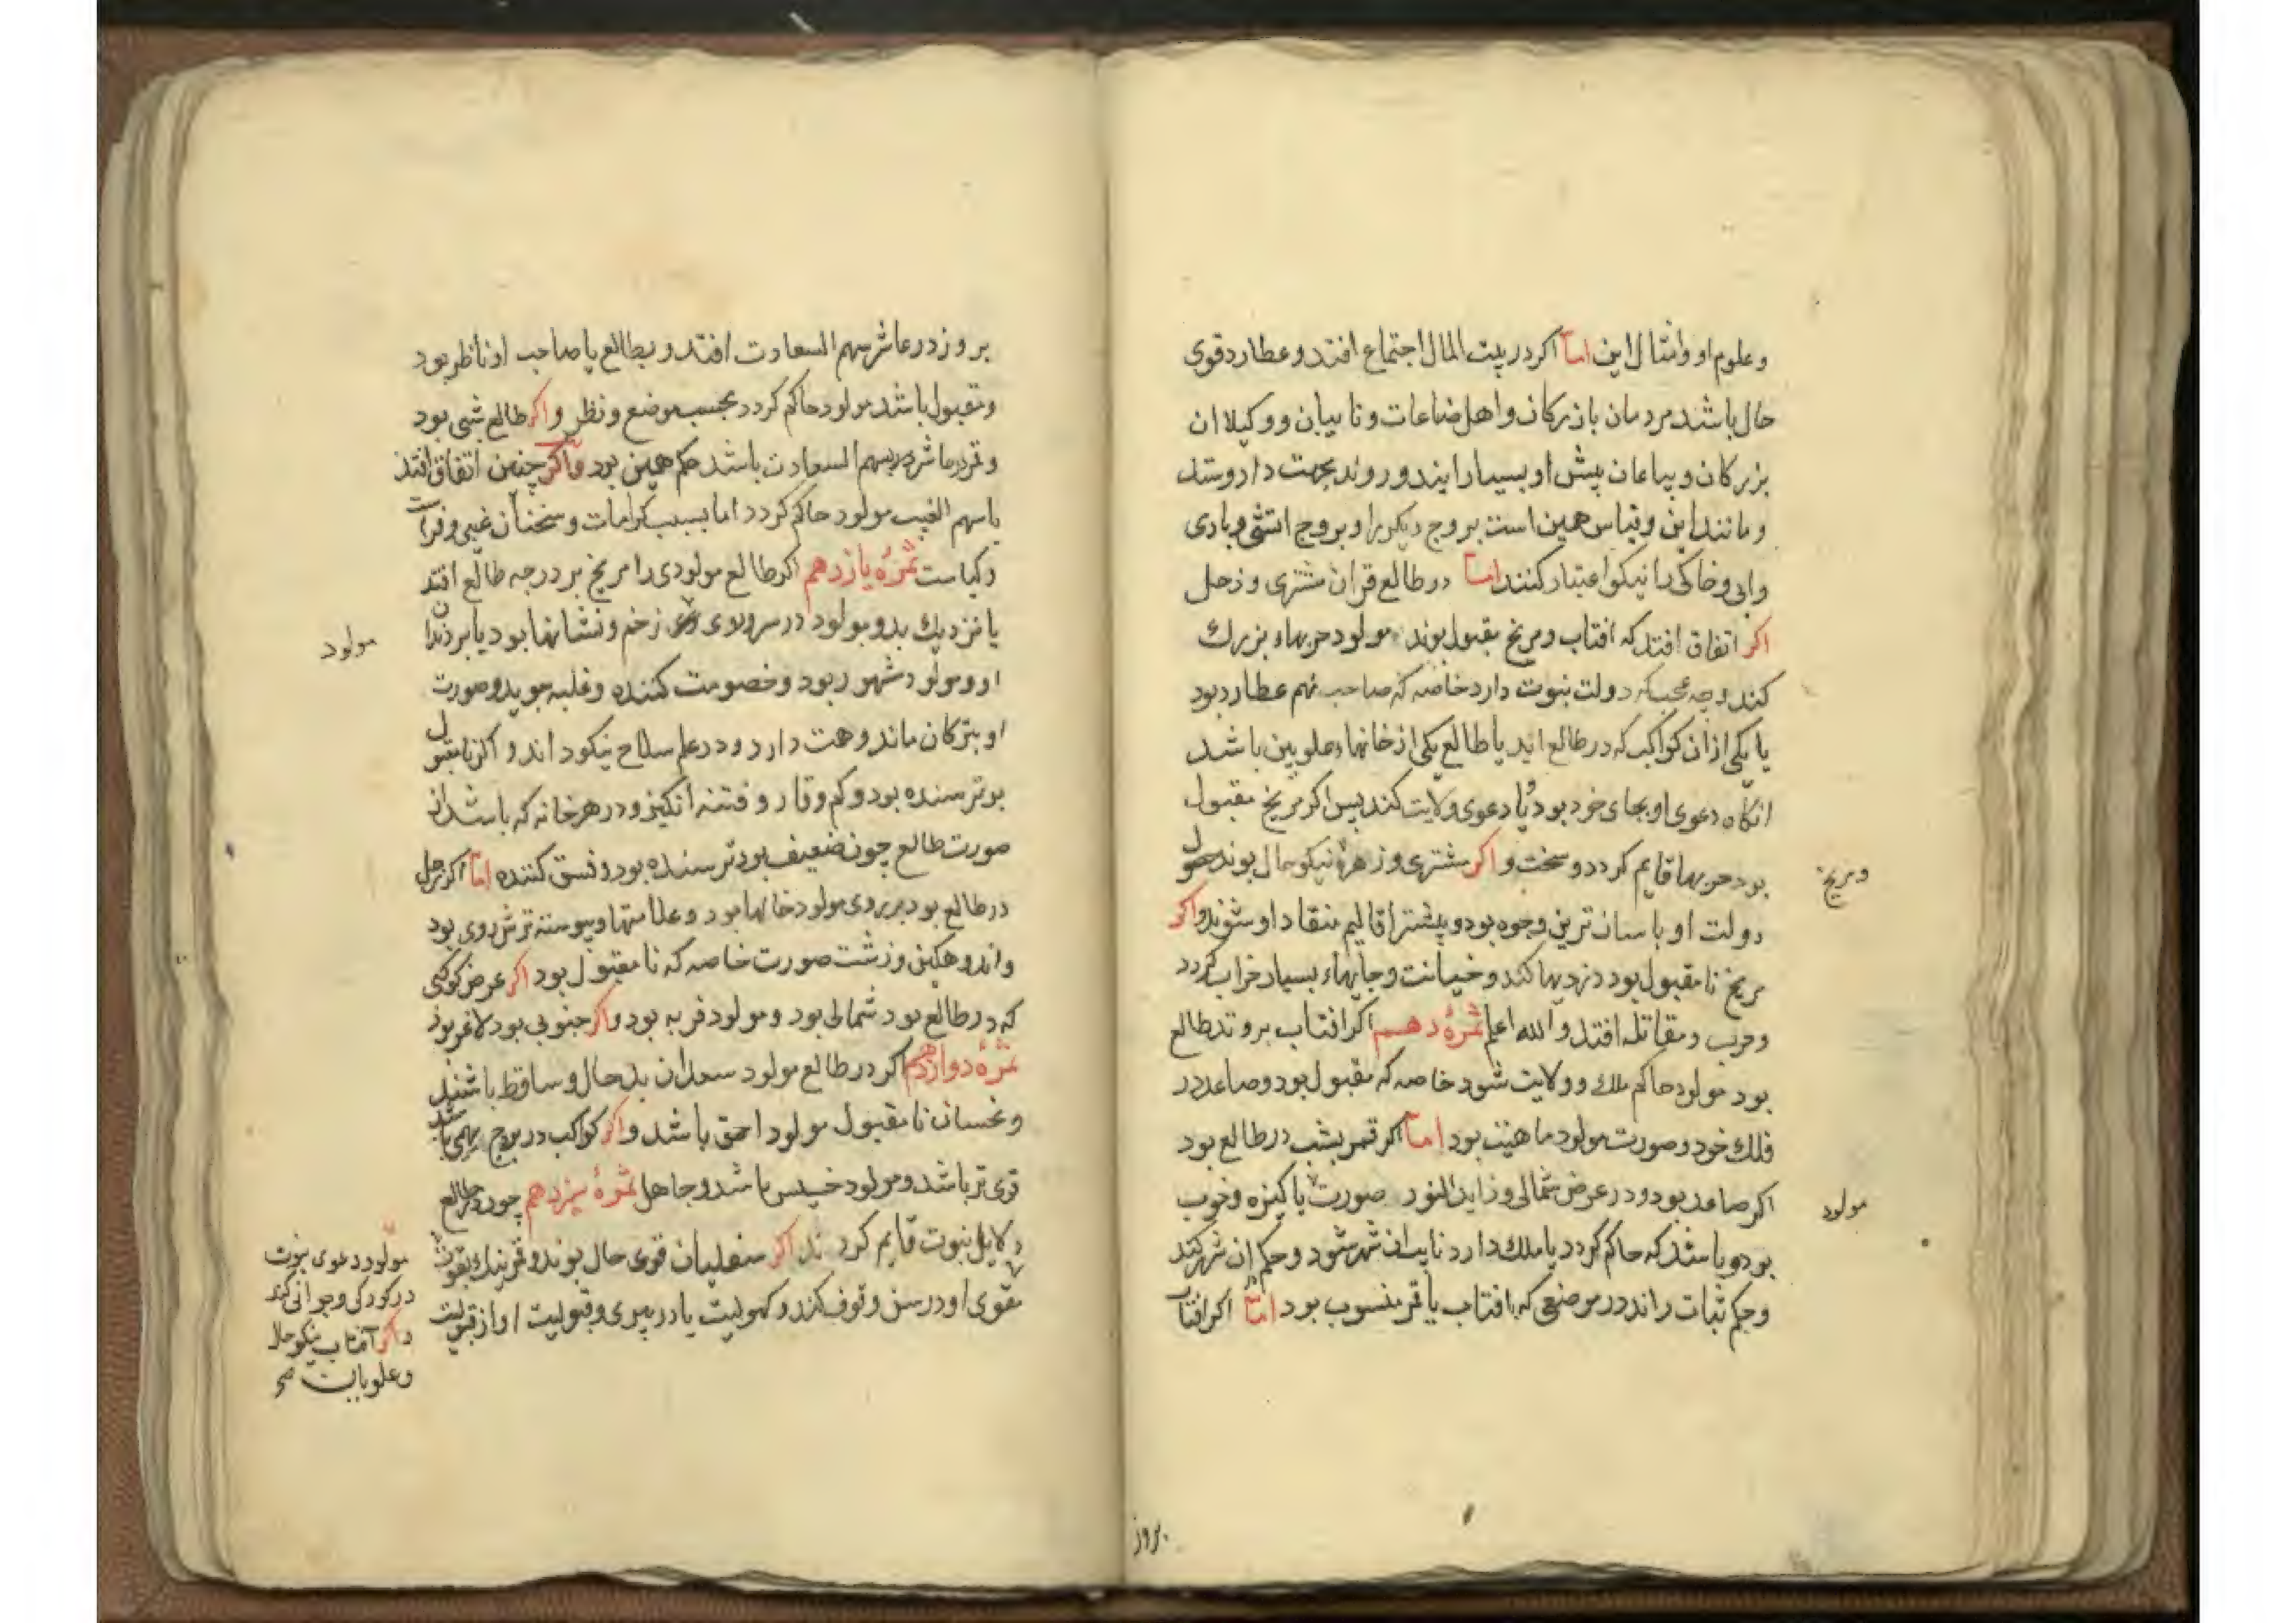 وعلوم او وامثال این اما اکر در بیت المال اجتماع افتد و عطارد قوی
حال باشد مردمان بازرکان و اهل ضاعات و نایبان و وکیلان
بزرکان و بیاعان پیش او بسیار ایند و روند بجهت داد و ستد
و مانند این و قیاس همین است بروج دیکر را و بروج اتشی و بادی
وابی و خاکی را نیکو اعتبار کنند اما در طالع قران مشتری و زحل
اکر اتفاق افتد که افتاب و مریخ مقبول بوند مولود حربهاء بزرک
کند وچه عجب که دولت نبوت دارد خاصه که صاحب نهم عطارد بود
یا یکی از ان کواکب که در طالع اند یا طالع یکی از خانهاء علویین باشد
انکاه دعوی او بجای خود بود و یا دعوی ولایت کند پس اکر مریخ مقبول
بود حربها قایم کردد و سخت و اکر مشتری و زهره نیکو حال بوند
ومریخ
دولت او باسان ترین وجوه بود و بیشتر اقالیم منقاد او شوند واکر
مریخ نا مقبول بود دزدیها کند و خیانت و جایهاء بسیار خراب کردد
وحرب و مقاتله افتد والله اعلم ثمرهٔ دهم اکر افتاب بر وتد طالع
بود مولود حاکم ملک و ولایت شود خاصه که مقبول بود و صاعد در
فلک خود و صورت مولود با هیئت بود اما اکر قمر بشب در طالع بود
اکر صاعد بود و در عرض شمالی و زاید النور صورت پاکیزه و خوب
مولود
بود و باشد که حاکم کردد یا ملک دارد نایب ان شهر شود و حکم ان شهر کند
وحکم ثبات راند در موضعی که بافتاب یا قمر منسوب بود اما اکر افتاب
بروز
بروز در عاشر سهم السعادت افتد و بطالع یا صاحب او ناظر بود
و مقبول باشد مولود حاکم کردد بحسب موضع و نظر و اکر طالع شبی بود
و قمر در عاشر سهم السعادت باشد حکم همین بود واکر چنین اتفاق افتد
با سهم الغیب مولود حاکم کردد اما بسبب کرامات و سخنان غیبی و فراست
وکیاست ثمرهٔ یازدهم اکر طالع مولودی را مریخ بر درجه طالع افتد
یا نزدیک بدو مولود در سر و روی زخم و نشانها بود یا بر دندان
مولود
او و مولود مشهور بود و خصومت کننده و غلبه جوید و صورت
او بترکان ماند و همت دارد و در علم سلاح نیکو داند و اکر نا مقبول
بود ترسنده بود و کم وقار و فتنه انکیز و در هر خانه که باشد از
صورت طالع چون ضعیف بود ترسنده بود و فسق کننده اما اکر زحل
در طالع بود بر روی مولود خالها بود و علامتها و پیوسته ترش روی بود
واندوهکین و زشت صورت خاصه که نا مقبول بود اکر عرض کوکبی
که در طالع بود شمالی بود و مولود فربه بود و اکر جنوبی بود لاغر بود
ثمرهٔ دوازدهم اکر در طالع مولود سعدان بد حال و ساقط باشند
و نحسان نا مقبول مولود احمق باشد و اکر کواکب در بروج بهیمی باشد
قوی تر باشد و مولود خسیس باشد و جاهل ثمرهٔ سیزدهم چون در طالع
دلایل نبوت قایم کردند اکر سفلیان قوی حال بوند و قمر
مقوی او در سن وقوف کند و کهولیت یا در پیری و قبولیت او از
مولود دعوی نبوت
در کودکی و جوانی کند
واکر آفتاب نیکو حال
وعلویان صح